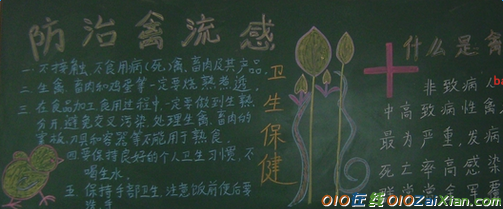 防治禽流感
一. 不接触、不食用病(死)禽、畜肉及其产品。
二. 生禽、畜肉和鸡蛋等一定要烧熟煮透,
三. 在食品加工食用过程中,一定要做到生熟
分开,避免交叉污染,处理生禽、畜肉的
案板、刀具和容器等不能用于熟食。
四 等保持良好的个人卫生习惯,不
喝生水,
五. 保持手部卫生,注意饭前便后要
洗手
卫生保健
什么是禽
非致病
中高致病性禽
最为严重,发病
死亡率高感染
群常常
010在线 010ZaiXian.com